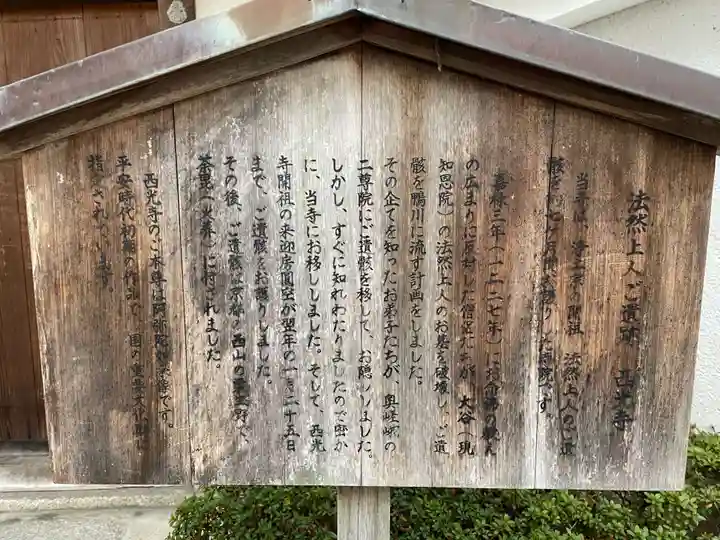 法然上人ご遺跡 西光寺
当寺は、浄土宗の開祖 法然上人のご遺
骸を約七ヶ月間お護りした寺院です。
嘉禄三年(一二二七年)にお念佛の教え
の広まりに反対した僧侶たちが、大谷(現
知恩院)の法然上人のお墓を破壊し、ご遺
骸を鴨川に流す計画をしました。
その企てを知ったお弟子たちが、奥嵯峨の
二尊院にご遺骸を移して、お隠ししました。
しかし、すぐに知れわたりましたので密か
に、当寺にお移ししました。そして、西光
寺開祖の来迎房圓空が翌年の一月二十五日
まで、ご遺骸をお護りしました。
その後、ご遺骸は京都の西山の粟生野で、
荼毘(火葬)に付されました。
西光寺のご本尊は阿弥陀如来様です。
平安時代初期の作品で、国の重要文化財に
指定されています。